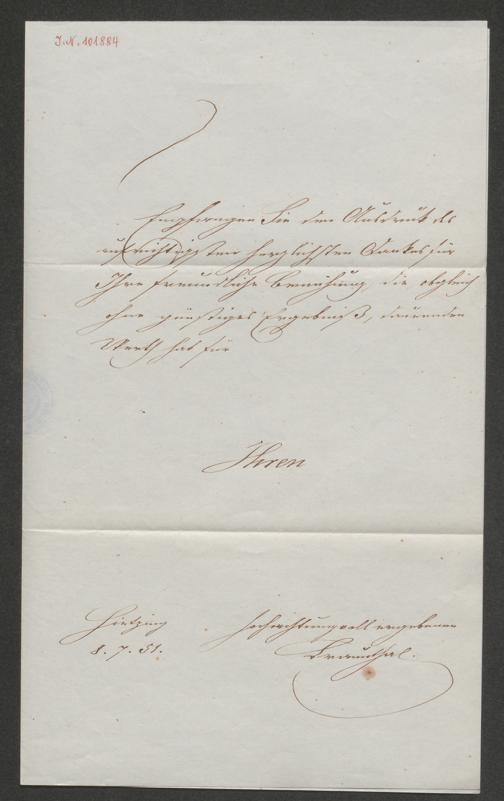 J.N. 101884
Empfangen Sie den Ausdruck des
aufrichtigsten herzlichsten Dankes für
Ihre freundliche Bemühung, die obgleich
ohne günstiges Ergebniß, dauernden
Werth hat für
Ihren
Hietzing
hochachtungsvoll ergebenen
8.7.51.
Braunthal.